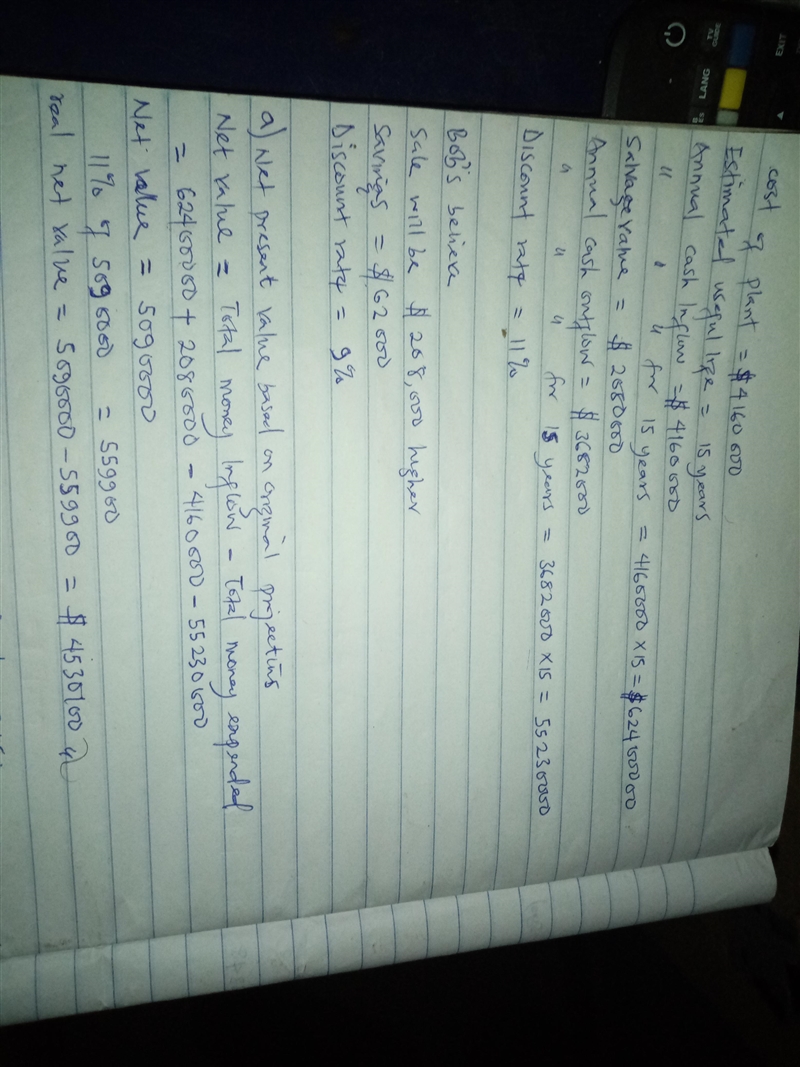 cost of Plant = $4160000
Estimated useful life = 15 years
Annual cash Inflow = $4160000
" " " for 15 years = 4160000 × 15 = $62400000
Salvage value = $2080000
Annual cash outflow = $3682000
" " " for 15 years = 3682000 × 15 = 55230000
Discount rate = 11%
Bob's believe
Sale will be $208,000 higher
Savings = $62000
Discount rate = 9%
a) Net present value based on original projecting
Net value = Total money Inflow - Total money expended
= 62400000 + 2080000 - 4160000 - 55230000
Net value = 5090000
11% of 5090000 = 559900
real net value = 5090000 - 559900 = $4530100
TV GUIDE
EXIT
LANG